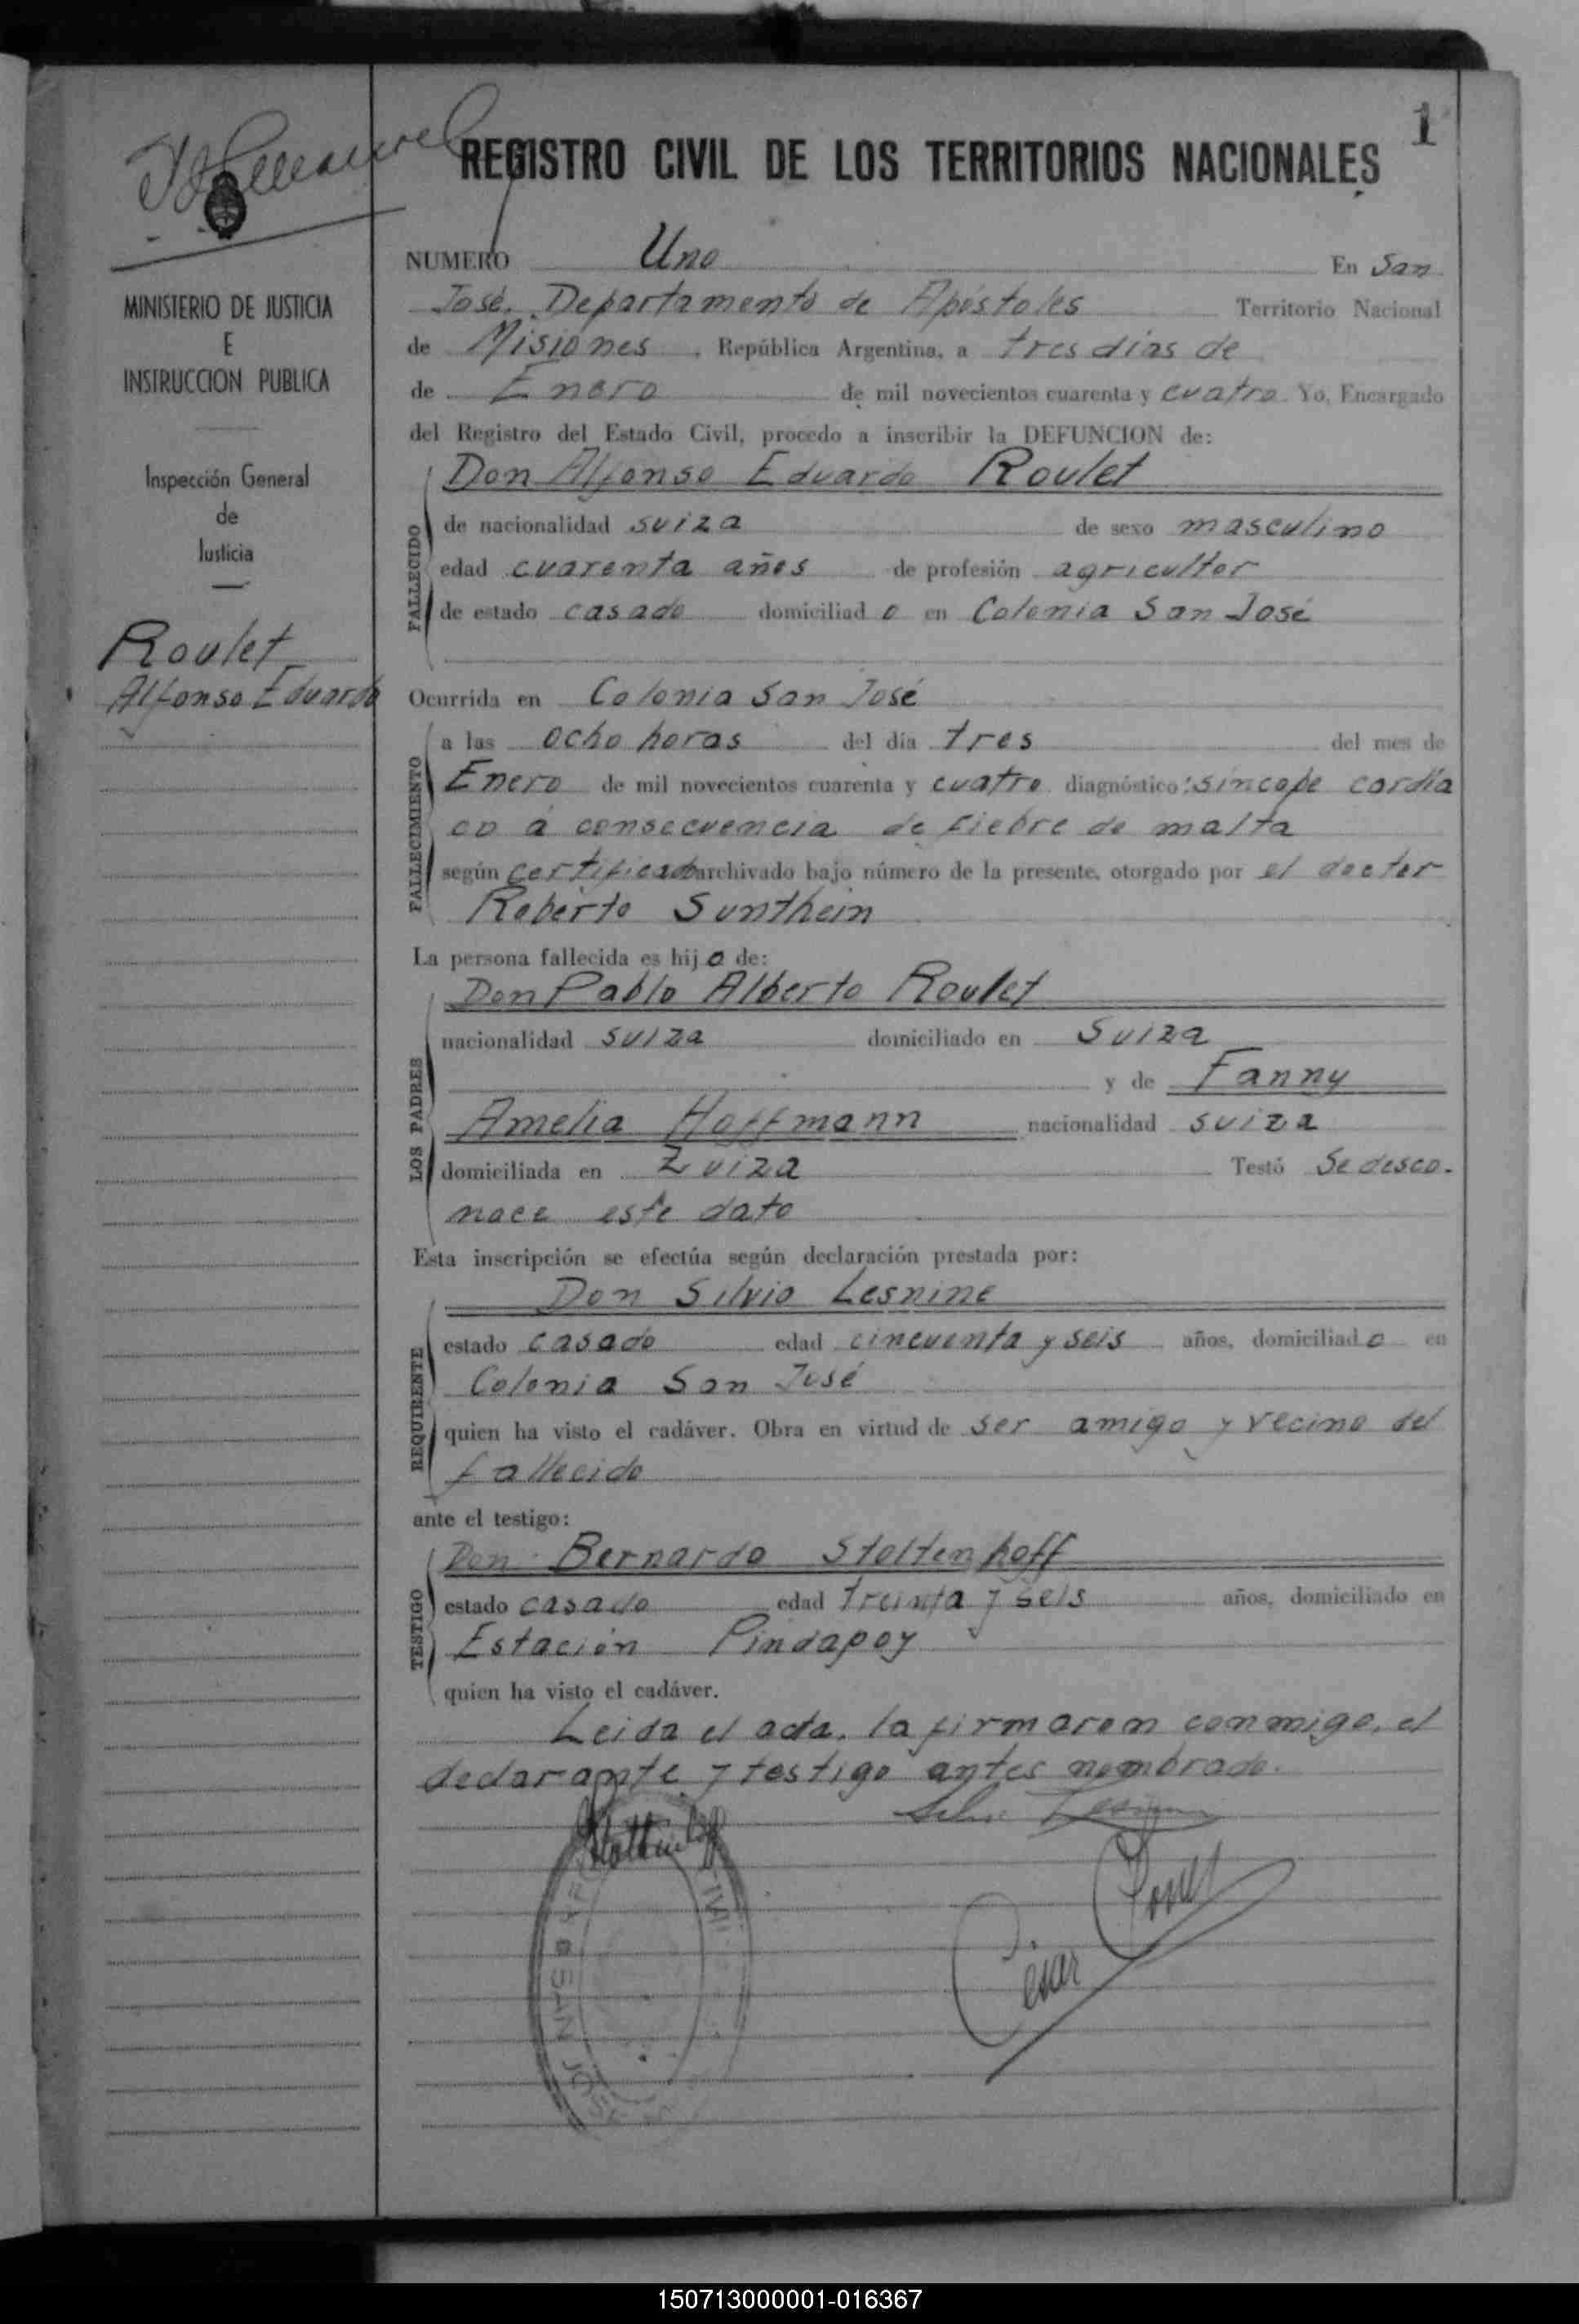 1
REGISTRO CIVIL DE LOS TERRITORIOS NACIONALES
MINISTERIO DE JUSTICIA
E
INSTRUCCION PUBLICA
Inspección General
de
Justicia
Roulet
Alfonso Eduardo
NUMERO Uno En San
José. Departamento de Apóstoles Territorio Nacional
de Misiones, República Argentina, a tres dias de
de Enero de mil novecientos cuarenta y cuatro. Yo, Encargado
del Registro del Estado Civil, procedo a inscribir la DEFUNCION de:
FALLECIDO
Don Alfonso Eduardo Roulet
de nacionalidad suiza de sexo masculino
edad cuarenta años de profesión agricultor
de estado casado domiciliado en Colonia San José
Ocurrida en Colonia San José
FALLECIMIENTO
a las ocho horas del día tres del mes de
Enero de mil novecientos cuarenta y cuatro diagnóstico: síncope cardía
co á consecuencia de fiebre de malta
según certificado archivado bajo número de la presente, otorgado por el doctor
Roberto Sunthein
La persona fallecida es hijo de:
LOS PADRES
Don Pablo Alberto Roulet
nacionalidad suiza domiciliado en Suiza
y de Fanny
Amelia Hoffmann nacionalidad suiza
domiciliada en Zuiza Testó Se desco-
noce este dato
Esta inscripción se efectúa según declaración prestada por:
REQUIRENTE
Don Silvio Lesnine
estado casado edad cincuenta y seis años, domiciliado en
Colonia San José
quien ha visto el cadáver. Obra en virtud de ser amigo y vecino del
fallecido
ante el testigo:
TESTIGO
Don Bernardo Stoltenhoff
estado casado edad treinta y seis años, domiciliado en
Estación Pindapoy
quien ha visto el cadáver.
Leida el acta, la firmaron conmigo, el
declarante y testigo antes nombrado.
Stoltenhoff
César
CIVIL
SAN JOSE
150713000001-016367